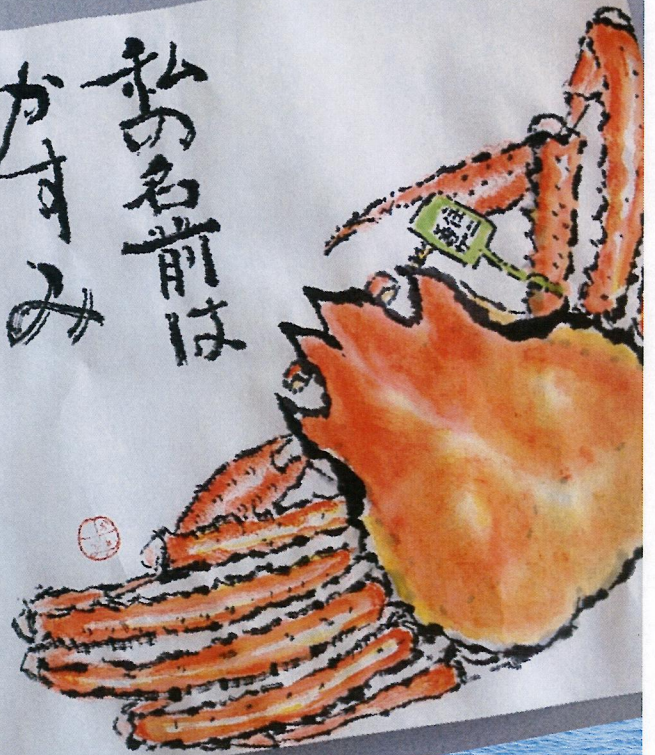 私の名前は
かすみ